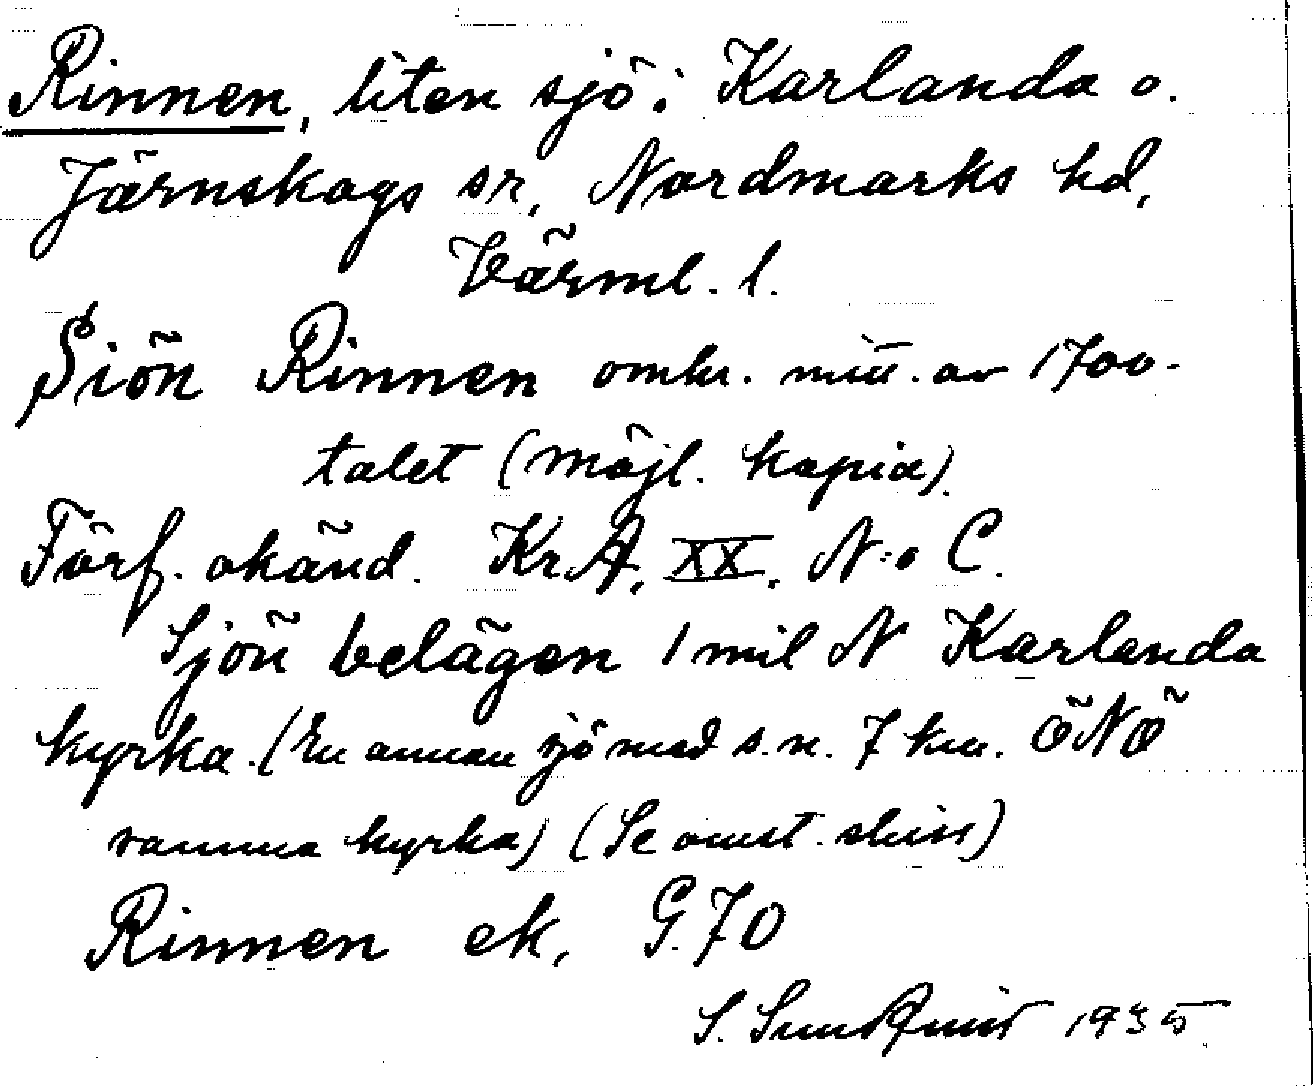 Rinnen, liten sjö i Karlanda o.
Järnskogs sr, Nordmarks hd,
Värml. l.
Siön Rinnen omkr. mitt. av 1700-
talet (möjl. kopia).
Förf. okänd. KrA, XX, N:o C.
Sjön belägen 1 mil N Karlanda
kyrka. (En annan sjö med s. n. 7 km. ÖNÖ
samma kyrka) (Se omst. skiss)
Rinnen ek, G. 70
S. Sundquist 1935